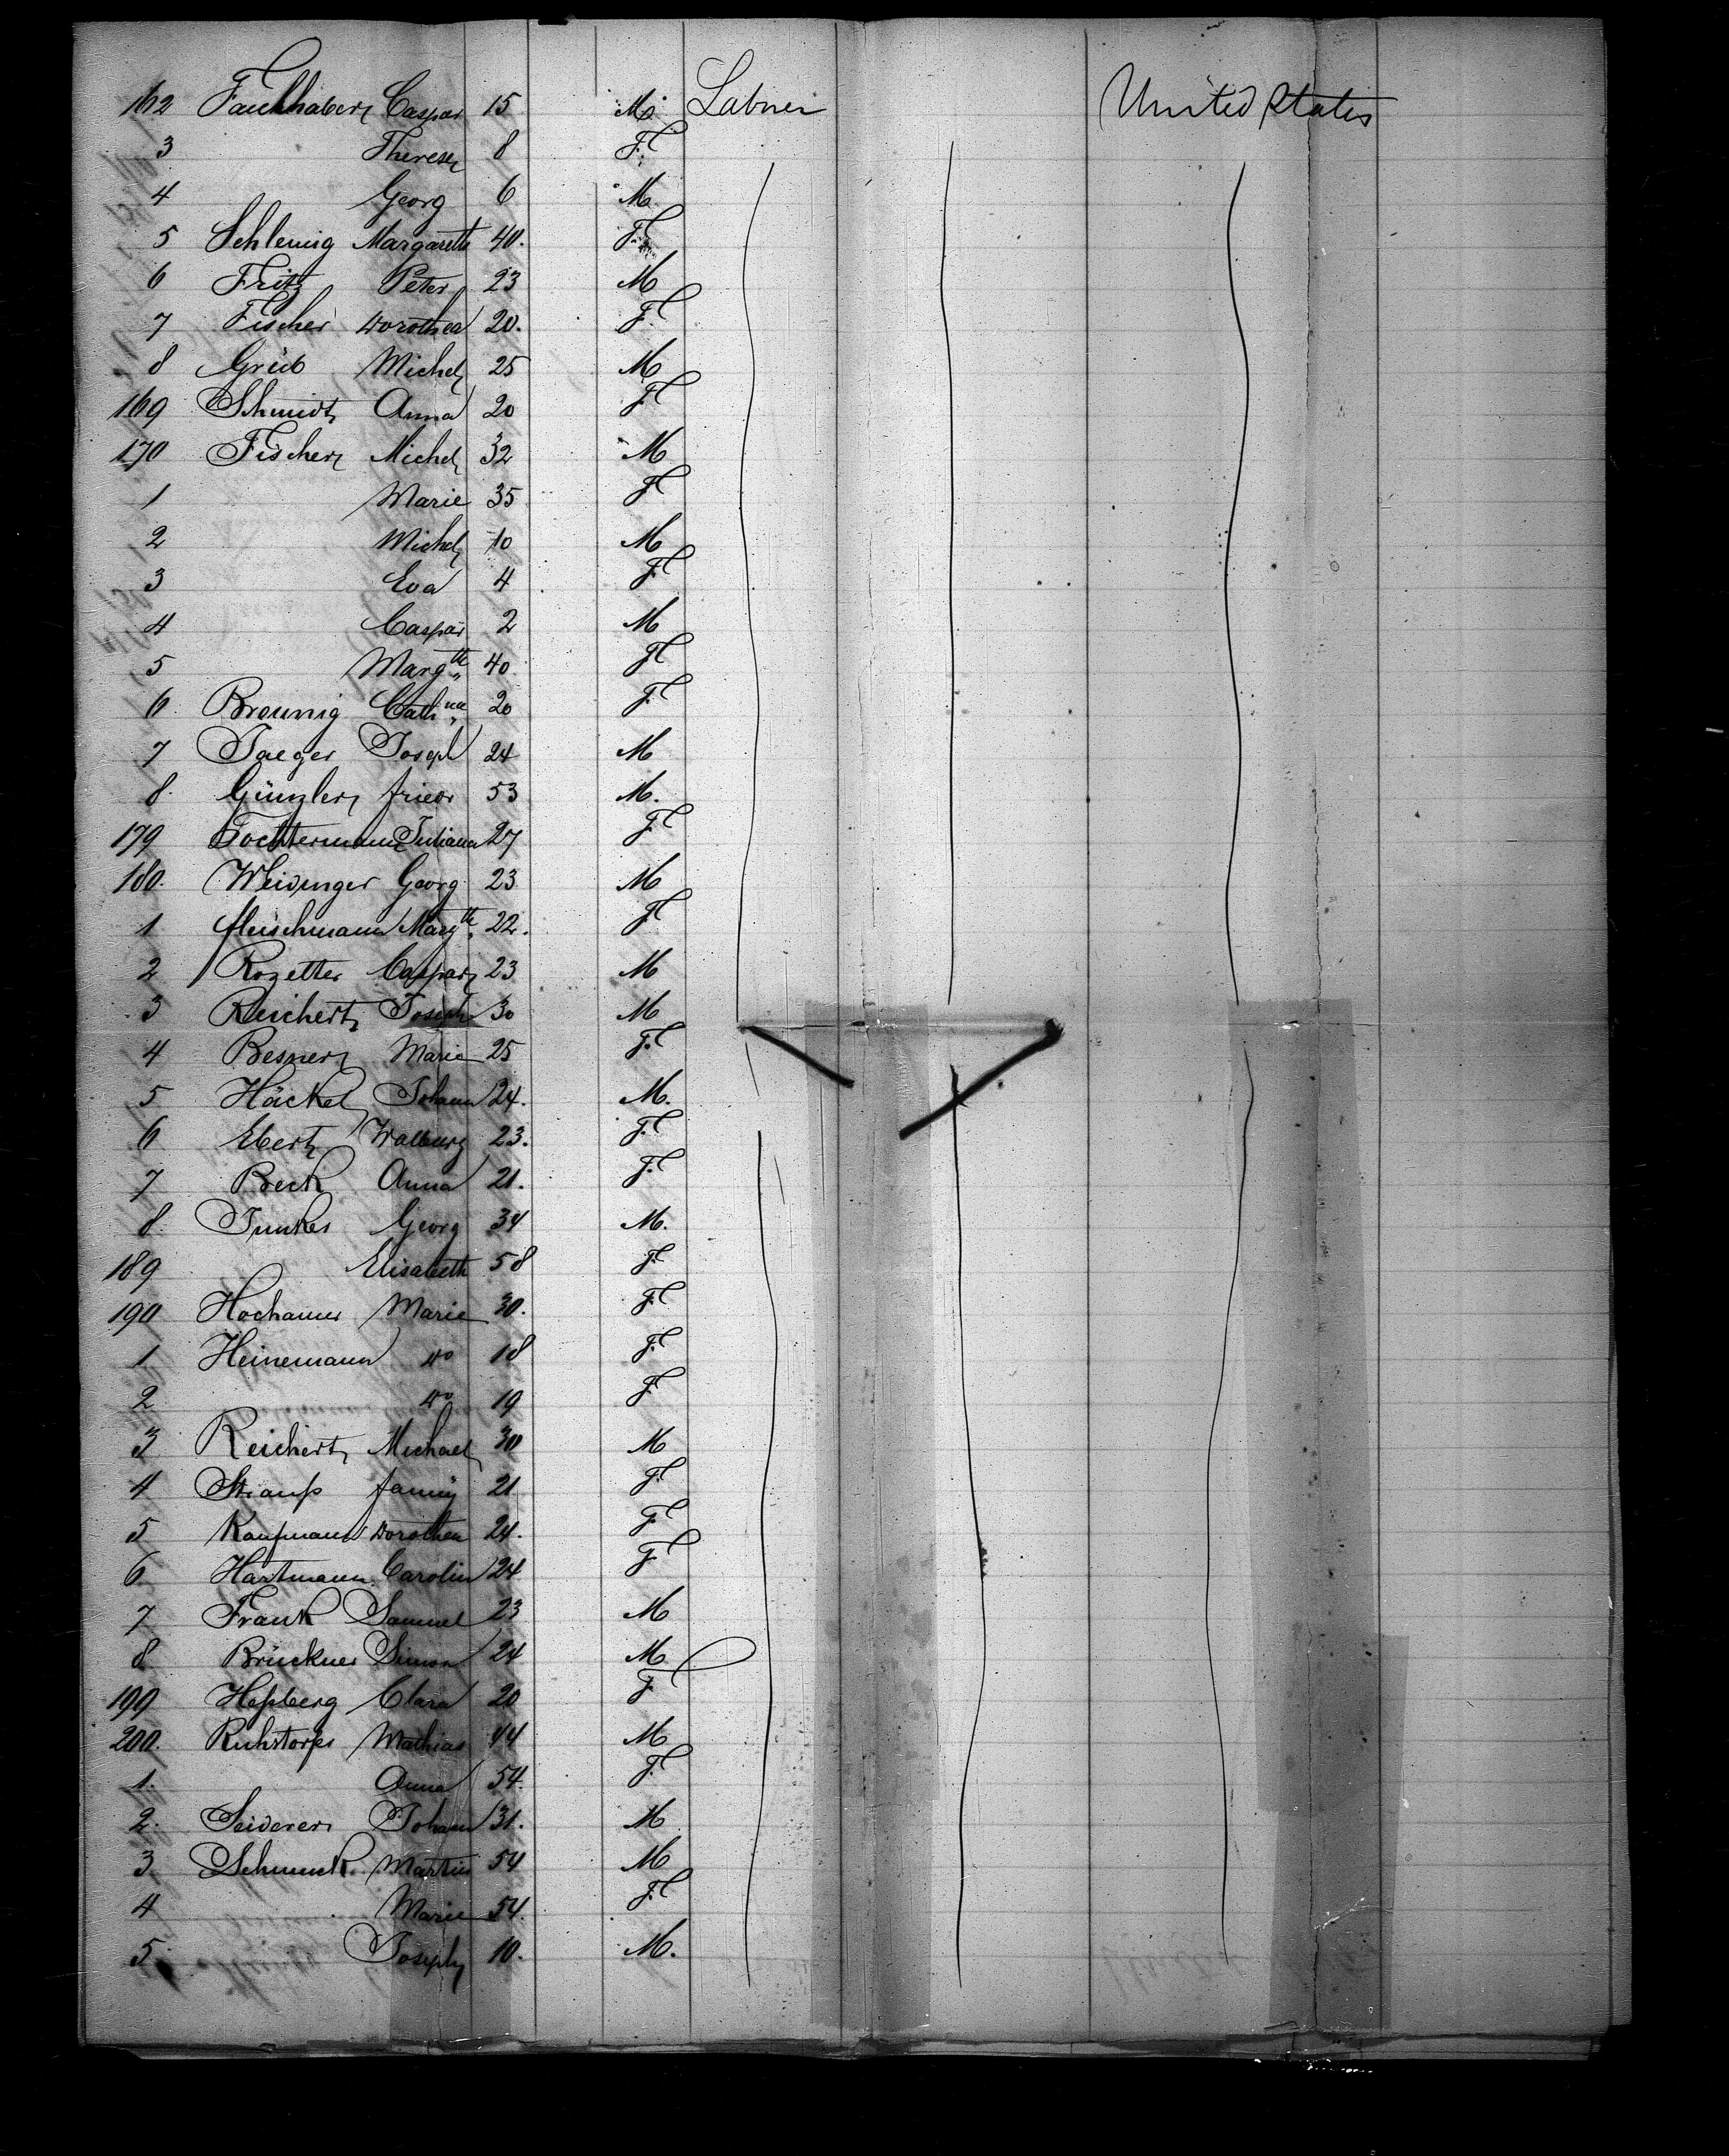 162 Faulhaber Caspar 15 M Labrer United States
3 Therese 8 F
4 Georg 6 M
5 Schlemig Margareth 40. F
6 Fritz Peter 23 M
7 Fischer Dorothea 20. F
8 Grub Michel 25 M
169 Schmidt Anna 20 F
170 Fischer Michel 32 M
1 Marie 35 F
2 Michel 10 M
3 Eva 4 F
4 Caspar 2 M
5 Margth 40 F
6 Breunig Cathna 20 F
7 Jaeger Joseph 24 M
8. Günzler Friedr 53 M.
179 Tochtermann Juliana 27 F
180. Weidinger Georg 23 M
1 Fleischmann Margth. 22. F
2 Rozetter Caspar 23 M
3 Reichert Joseph 30 M
4 Besner Marie 25 F.
5 Häckel Johann 24. M.
6 Ebert Walburg 23. F.
7 Beck Anna 21. F.
8. Junker Georg 34 M.
189 Elisabeth 58 F.
190 Hochamer Marie 30. F.
1 Heinemann do 18 F.
2 do 19 F
3 Reichert Michael 30 M
4 Strauß Fanny 21 F.
5 Kaufmann Dorothea 24. F
6. Hartmann Carolin 24 F
7 Frank Samuel 23 M
8. Brückner Simon 24 M
199 Heßberg Clara 20 F
200. Ruhstorfer Mathias 44 M
1. Anna 54. F.
2. Seiderer Johann 31. M
3 Schmuck Martin 54 M
4 Marie 54. F.
5. Joseph 10. M.